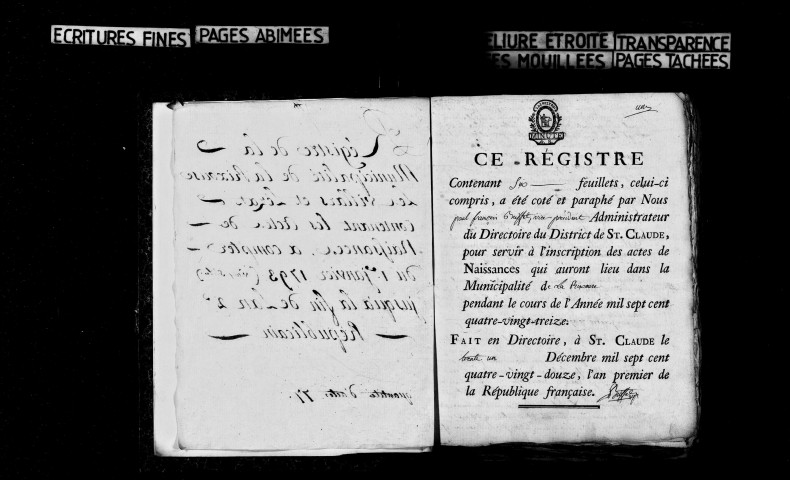 ECRITURES FINES
PAGES ABIMEES
RELIURE ETROITE
TRANSPARENCE
MOUILLEES
PAGES TACHEES
Régistre de la
Municipalité de la
contenant les actes de
Naissances, a compter
du 1er janvier 1793
jusqu'à la fin de l'an 2e
Républicain
quantité d'actes 77
MINUTE
CE RÉGISTRE
Contenant Six feuillets, celui-ci
compris, a été coté et paraphé par Nous
paul françois vice-président Administrateur
du Directoire du District de ST. CLAUDE,
pour servir à l'inscription des actes de
Naissances qui auront lieu dans la
Municipalité de La
pendant le cours de l'Année mil sept cent
quatre-vingt-treize.
FAIT en Directoire, à ST. CLAUDE le
trente un Décembre mil sept cent
quatre-vingt-douze, l'an premier de
la République française.